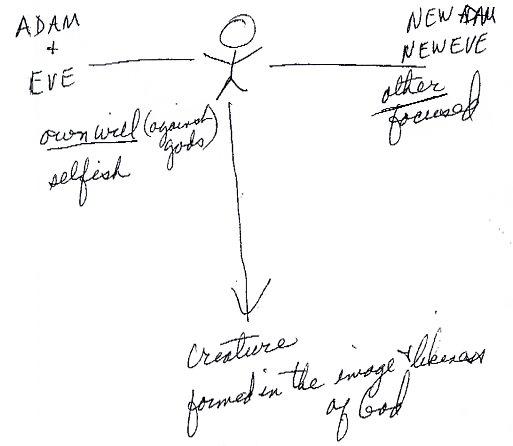 ADAM
+
EVE
NEW ADAM
NEW EVE
own will (against
gods)
selfish
other
focused
Creature
formed in the image + likeness
of God